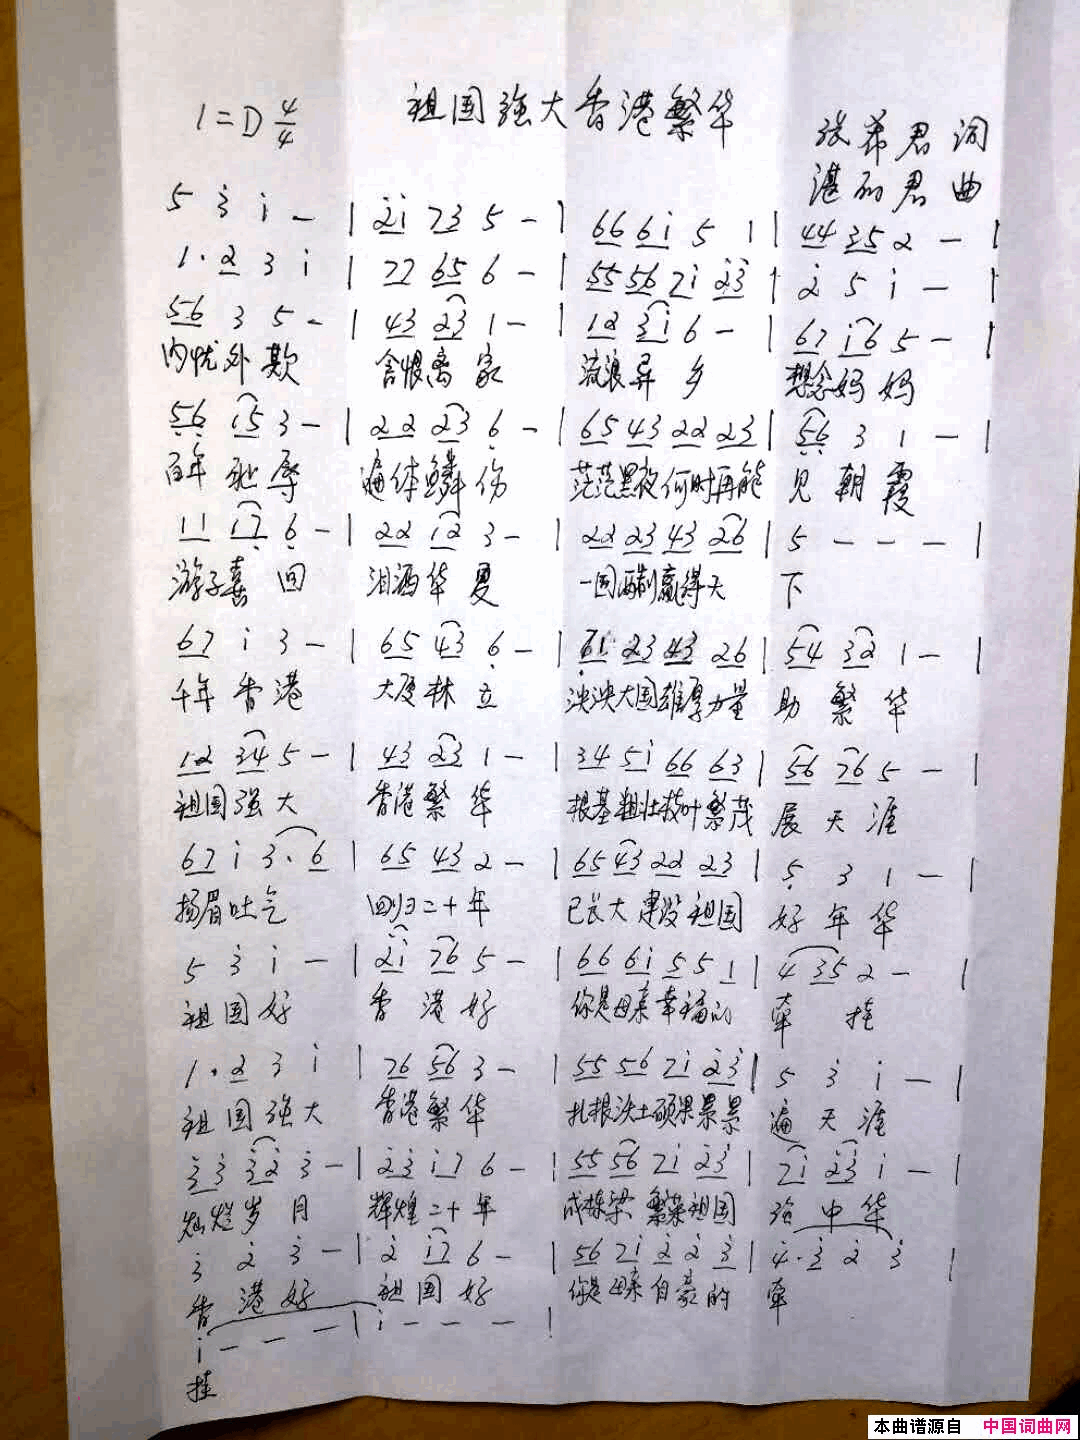 祖国强大香港繁华
1=D 4/4
张希君 词
湛 君 曲
5 3̇ i - | 2̇i 73 5 - | 66 6i 5 1 | 44 35 2 - |
1· 2 3 i | 77 65 6 - | 55 56 7i 2̇3̇ | 2̇ 5 i - |
56 3 5 - | 43 23 1 - | 12 3i 6 - | 67 i6 5 - |
内忧外欺 含恨离家 流浪异乡 想念妈妈
5̣6̣ 15 3 - | 22 23 6̣ - | 65 43 22 23 | 5̣6̣ 3 1 - |
百年耻辱 遍体鳞伤 茫茫黑夜何时再能 见朝霞
11 17̣ 6̣ - | 22 12 3 - | 22 23 43 26 | 5 - - - |
游子喜回 泪洒华夏 一国两制赢得天 下
67 i 3 - | 65 43 6̣ - | 6̣1 23 43 26 | 54 32 1 - |
千年香港 大厦林立 泱泱大国雄厚力量 助繁华
12 34 5 - | 43 23 1 - | 34 5i 66 63 | 56 76 5 - |
祖国强大 香港繁华 根基粗壮枝叶繁茂 展天涯
67 i 3· 6 | 65 43 2 - | 65 43 22 23 | 5̣ 3 1 - |
扬眉吐气 回归二十年 已长大建设祖国 好年华
5 3̇ i - | 2̇i 76 5 - | 66 6i 5 5 1 | 4 35 2 - |
祖国好 香港好 你是母亲幸福的 牵挂
1· 2 3 i | 76 56 3 - | 55 56 7i 2̇3̇ | 5 3̇ i - |
祖国强大 香港繁华 扎根沃土硕果累累 遍天涯
3̇3̇ 3̇2̇ 3̇ - | 2̇3̇ i7 6 - | 55 56 7i 2̇3̇ | 7i 2̇3̇ i - |
灿烂岁月 辉煌二十年 成栋梁 繁荣祖国 强中华
3̇ 2̇ 3̇ - | 2̇ i7 6 - | 56 7i 2̇ 2̇ 3̇ | 4̇· 3̇ 2̇ 3̇ |
香港好 祖国好 你是母亲自豪的 牵
i - - - | i - - - |
挂
本曲谱源自 中国词曲网